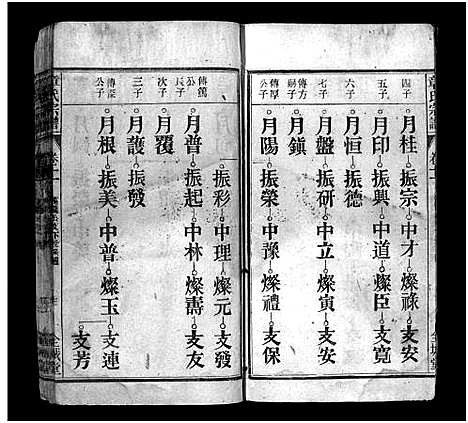 章氏宗譜
卷二
四子
月桂 振宗 中才 燦祿
五子
月印 振興 中道 燦臣 支寬
六子
月恒 振德
七子
月盤 振研 中立 燦寅 支安
傳方嗣子
月鎮
傳厚公子
月陽 振榮 中豫 燦禮 支保
振彩 中理 燦元 支發
傳篤公長子
月普 振起 中林 燦壽 支友
次子
月覆
三子
月護 振發
傳深公子
月根 振美 中普 燦玉 支連
支芳
章氏宗譜
卷二
全城堂